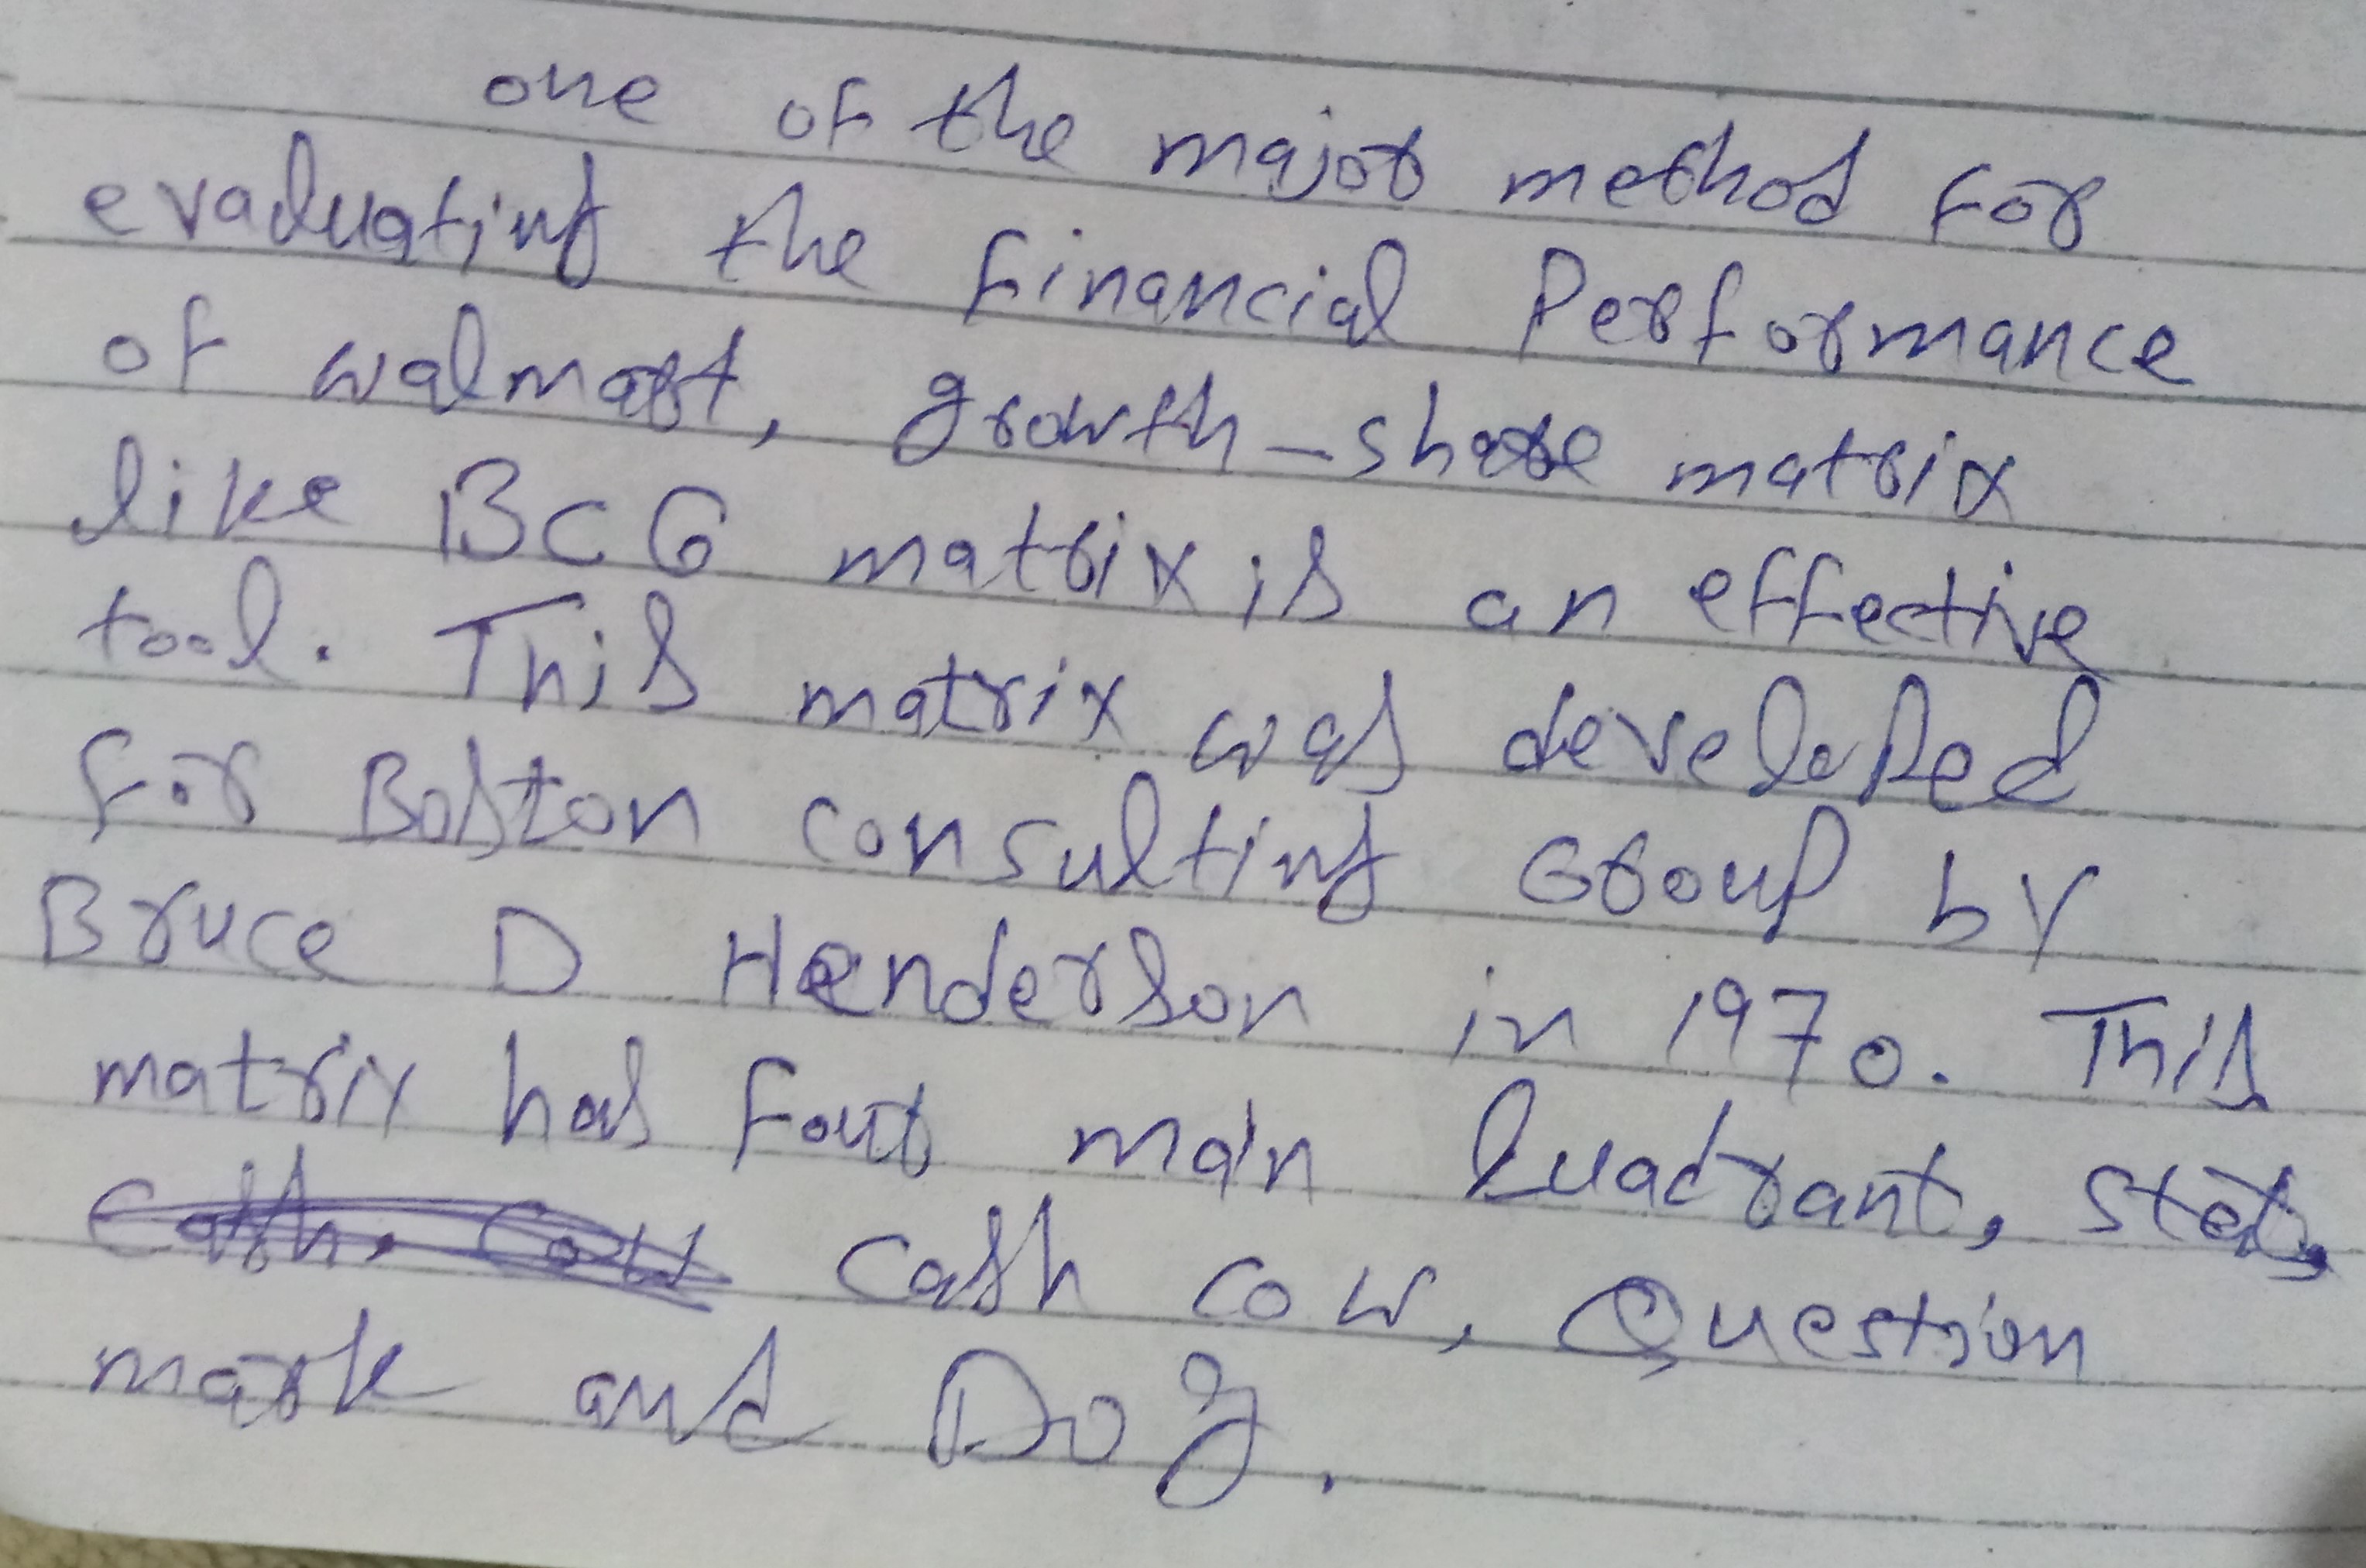 one of the major method for
evaluating the financial Performance
of walmart, growth-share matrix
like BCG matrix is an effective
tool. This matrix was developed
for Boston consulting Group by
Bruce D Henderson in 1970. This
matrix has four main Quadrant, star,
Cash, Cow Cash cow, Question
mark and Dog.